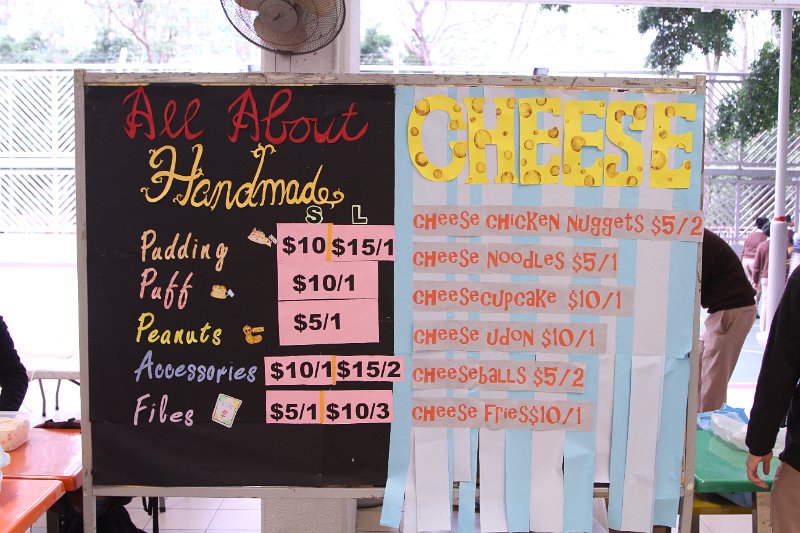 All About
Handmade
S L
Pudding $10 $15/1
Puff $10/1
Peanuts $5/1
Accessories $10/1 $15/2
Files $5/1 $10/3
CHEESE
CHEESE CHICKEN NUGGETS $5/2
CHEESE NOODLES $5/1
CHEESECUPCAKE $10/1
CHEESE UDON $10/1
CHEESEBALLS $5/2
CHEESE FRIES$10/1